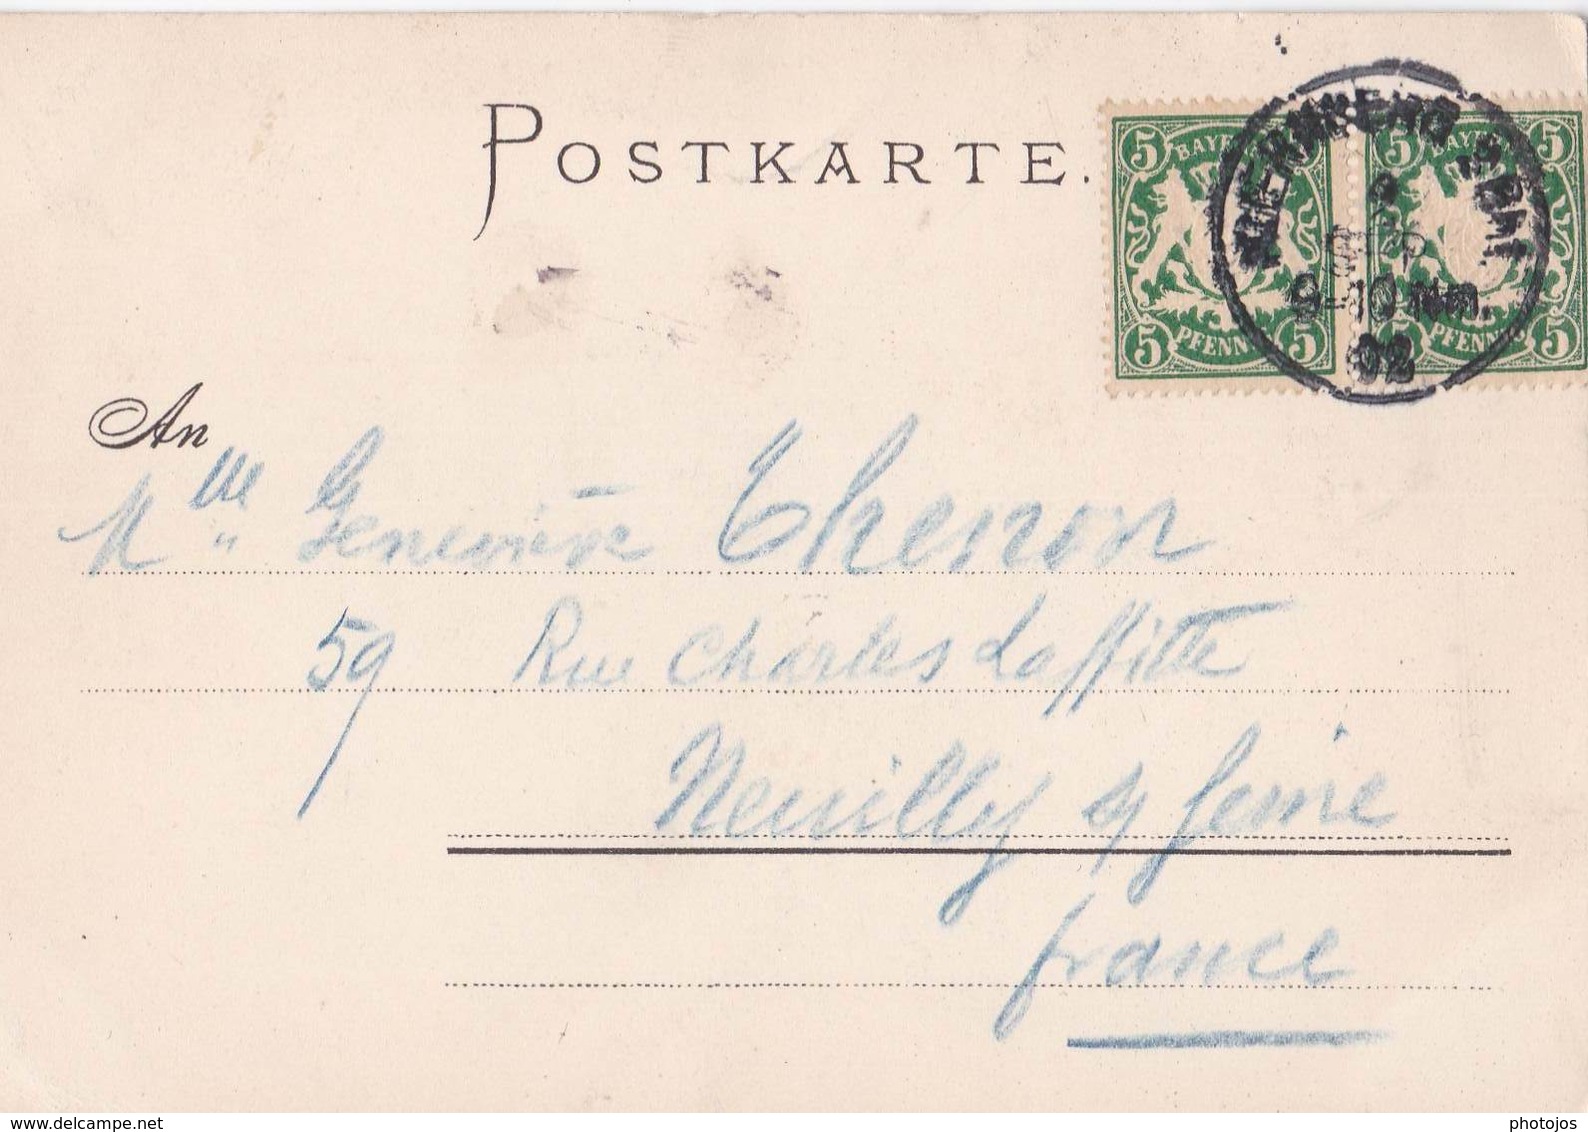 POSTKARTE.
5 BAYERN 5
5 PFENNIG 5
5 BAYERN 5
5 PFENNIG 5
NUERNBERG 2 BHF
9-10 Nm.
02
An
Mlle Geneviève Thenon
59 Rue Charles Laffitte
Neuilly s/ Seine
france
www.delcampe.net
photojos